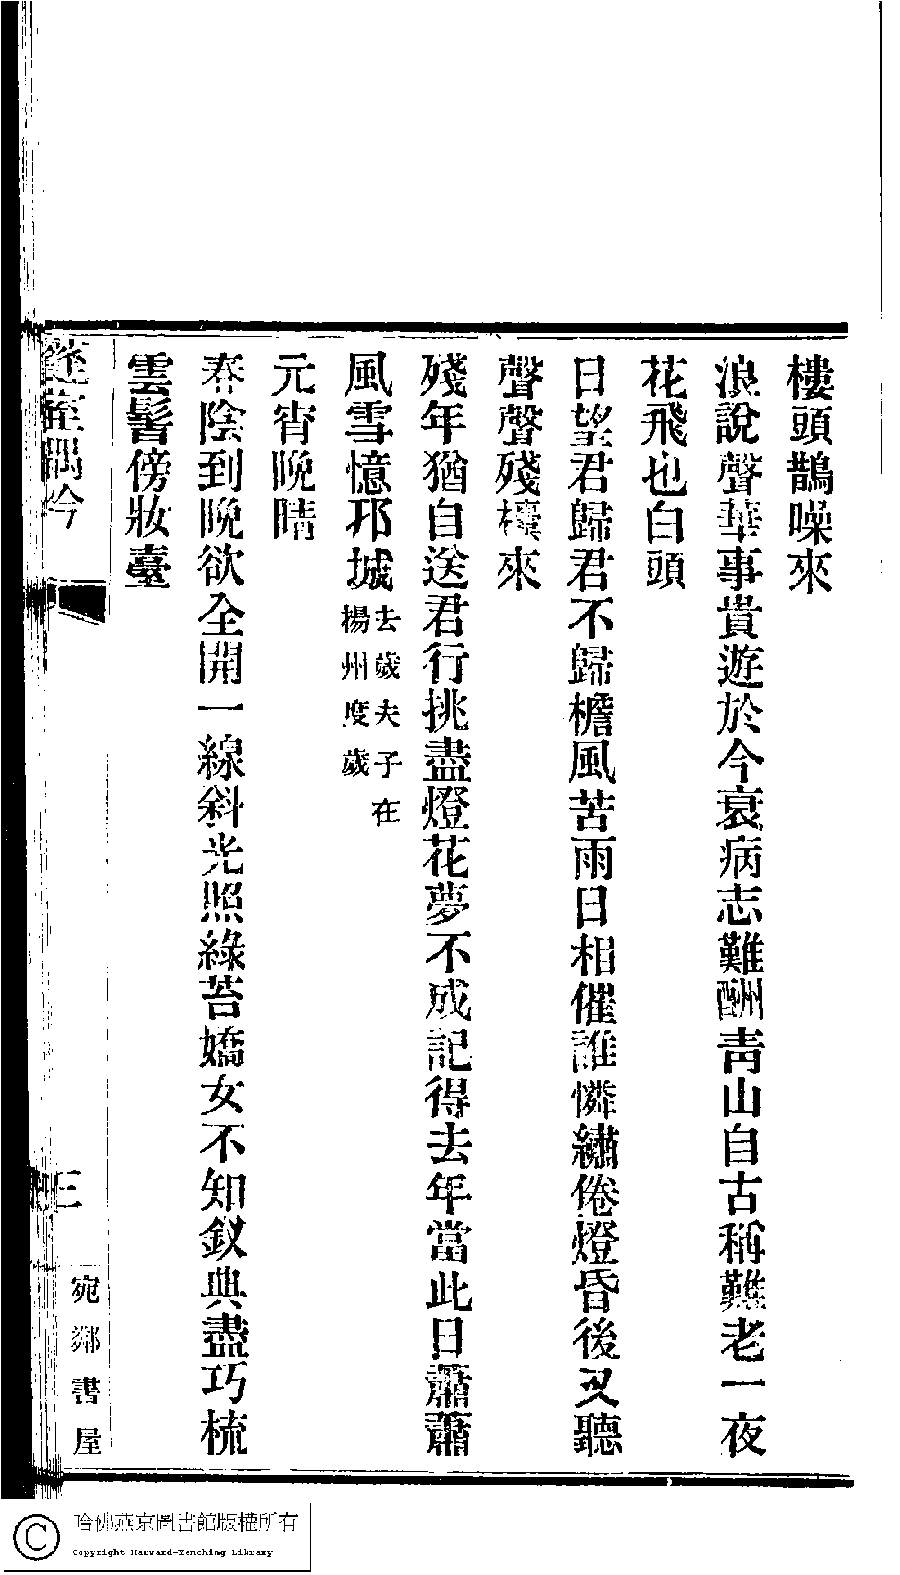 樓頭鵲噪來
浪說聲華事貴遊於今衰病志難酬青山自古稱難老一夜
花飛也白頭
日望君歸君不歸檐風苦雨日相催誰憐繡倦燈昏後又聽
聲聲殘櫖來
殘年猶自送君行挑盡燈花夢不成記得去年當此日蕭蕭
風雪憶邗城去歲夫子在
揚州度歲
元宵晚晴
春陰到晚欲全開一線斜光照綠苔嬌女不知釵典盡巧梳
雲髻傍妝臺
三
宛鄰書屋
哈佛燕京圖書館版權所有
Copyright Harvard-Yenching Library